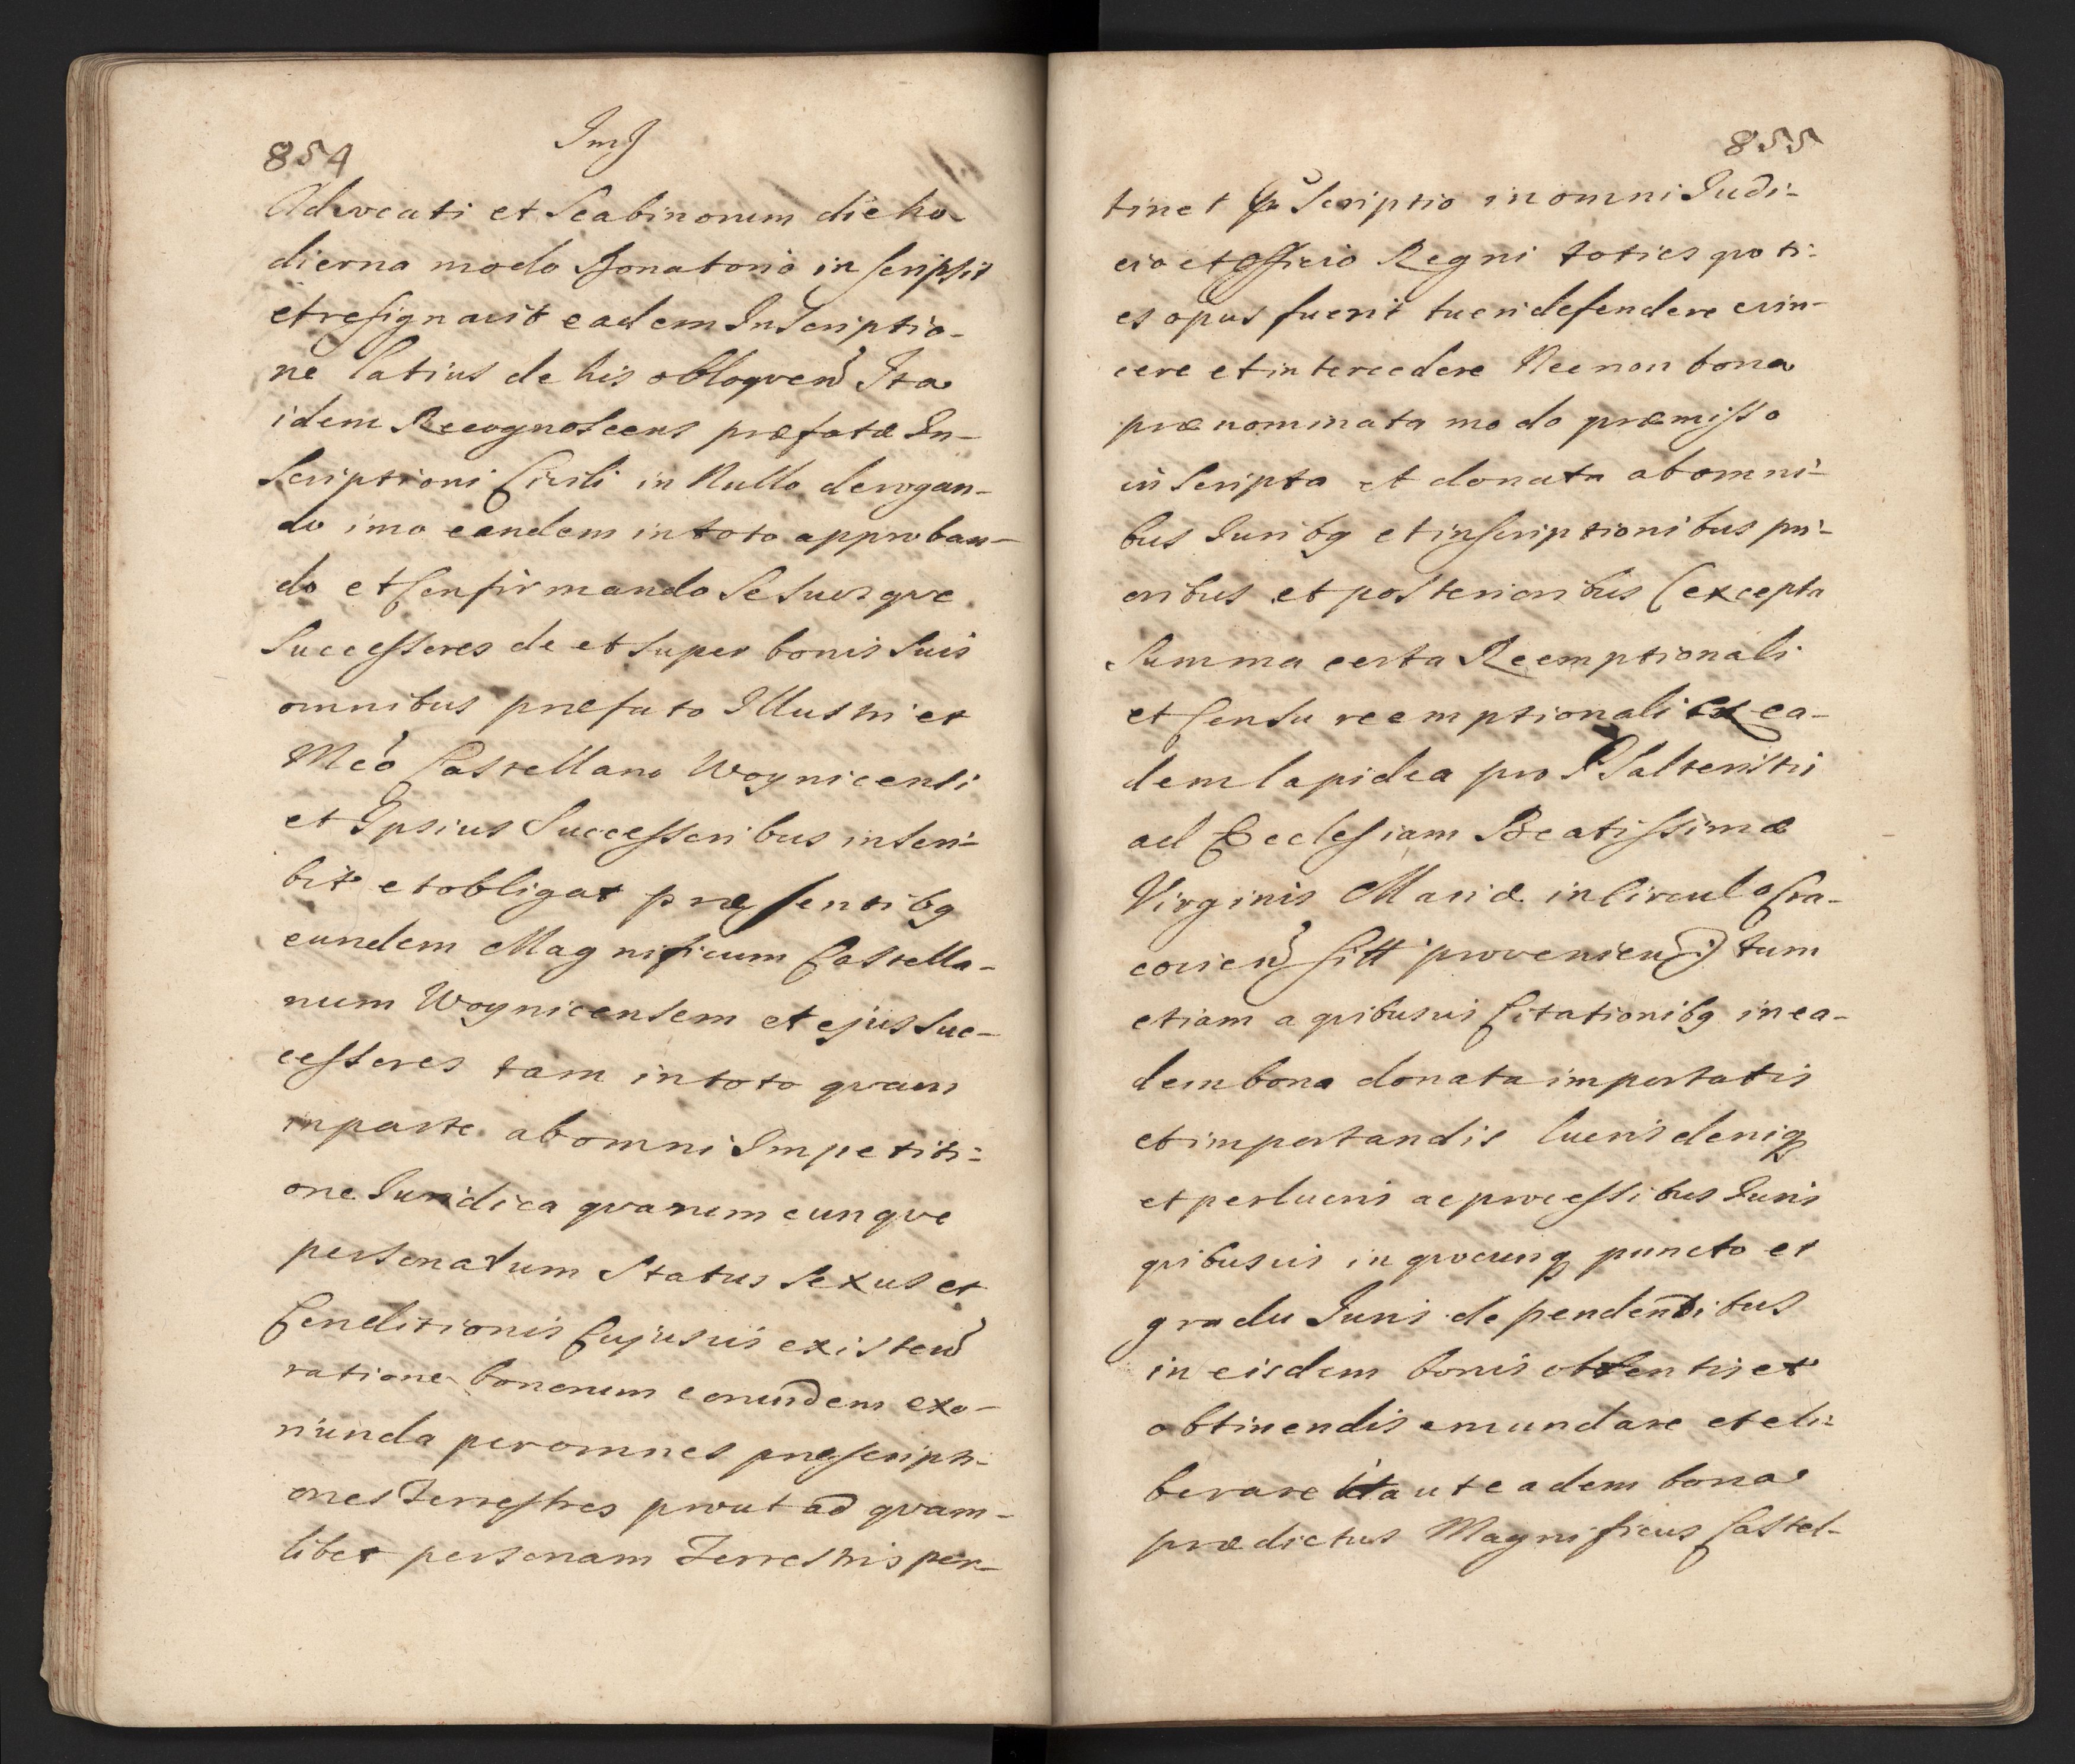 854
Advocati et Scabinorum die ho-
dierna modo Donatorio inscripsit
et resignavit eadem Inscriptio-
ne latius de his obloquen Ita
idem Recognoscens præfatæ In-
scriptioni Civili in Nullo derogan-
do imo eandem in toto approban-
do et Confirmando Se Suosque
Successores de et super bonis Suis
omnibus præfato Illustri et
Mco Castellano Woynicensi
et Ipsius Successoribus inscri-
bit et obligat præsentibq
eundem Magnificum Castella-
num Woynicensem et ejus Suc-
cessores tam in toto quam
in parte ab omni Impetiti-
one Juridica quarumcunque
personarum Status Sexus et
Conditionis Cujusvis existen
ratione bonorum eorundem exo-
riunda per omnes præscripti-
ones Terrestres prout ad quam-
libet personam Terrestris per-
855
tinet Præscriptio in omni Judi-
cio et Officio Regni toties quoti-
es opus fuerit tueri defendere evin-
cere et intercedere Nec non bona
prænominata modo præmisso
inscripta et donata ab omni-
bus Juribq et inscriptionibus pri-
oribus et posterioribus (excepta
Summa certa Reemptionali
et Censu reemptionali ex ea-
dem lapidea pro Psalteristis
ad Ecclesiam Beatissimæ
Virginis Mariæ in Circulo Cra-
covien Sitt provenien) tum
etiam a quibusvis Citationibq in ea-
dem bona donata importatis
et importandis lucris deniq
et perlucris ac processibus Juris
quibusvis in quocunq puncto et
gradu Juris dependentibus
in eisdem bonis obtentis et
obtinendis emundare et eli-
berare ita ut eadem bona
prædictus Magnificus Castel-